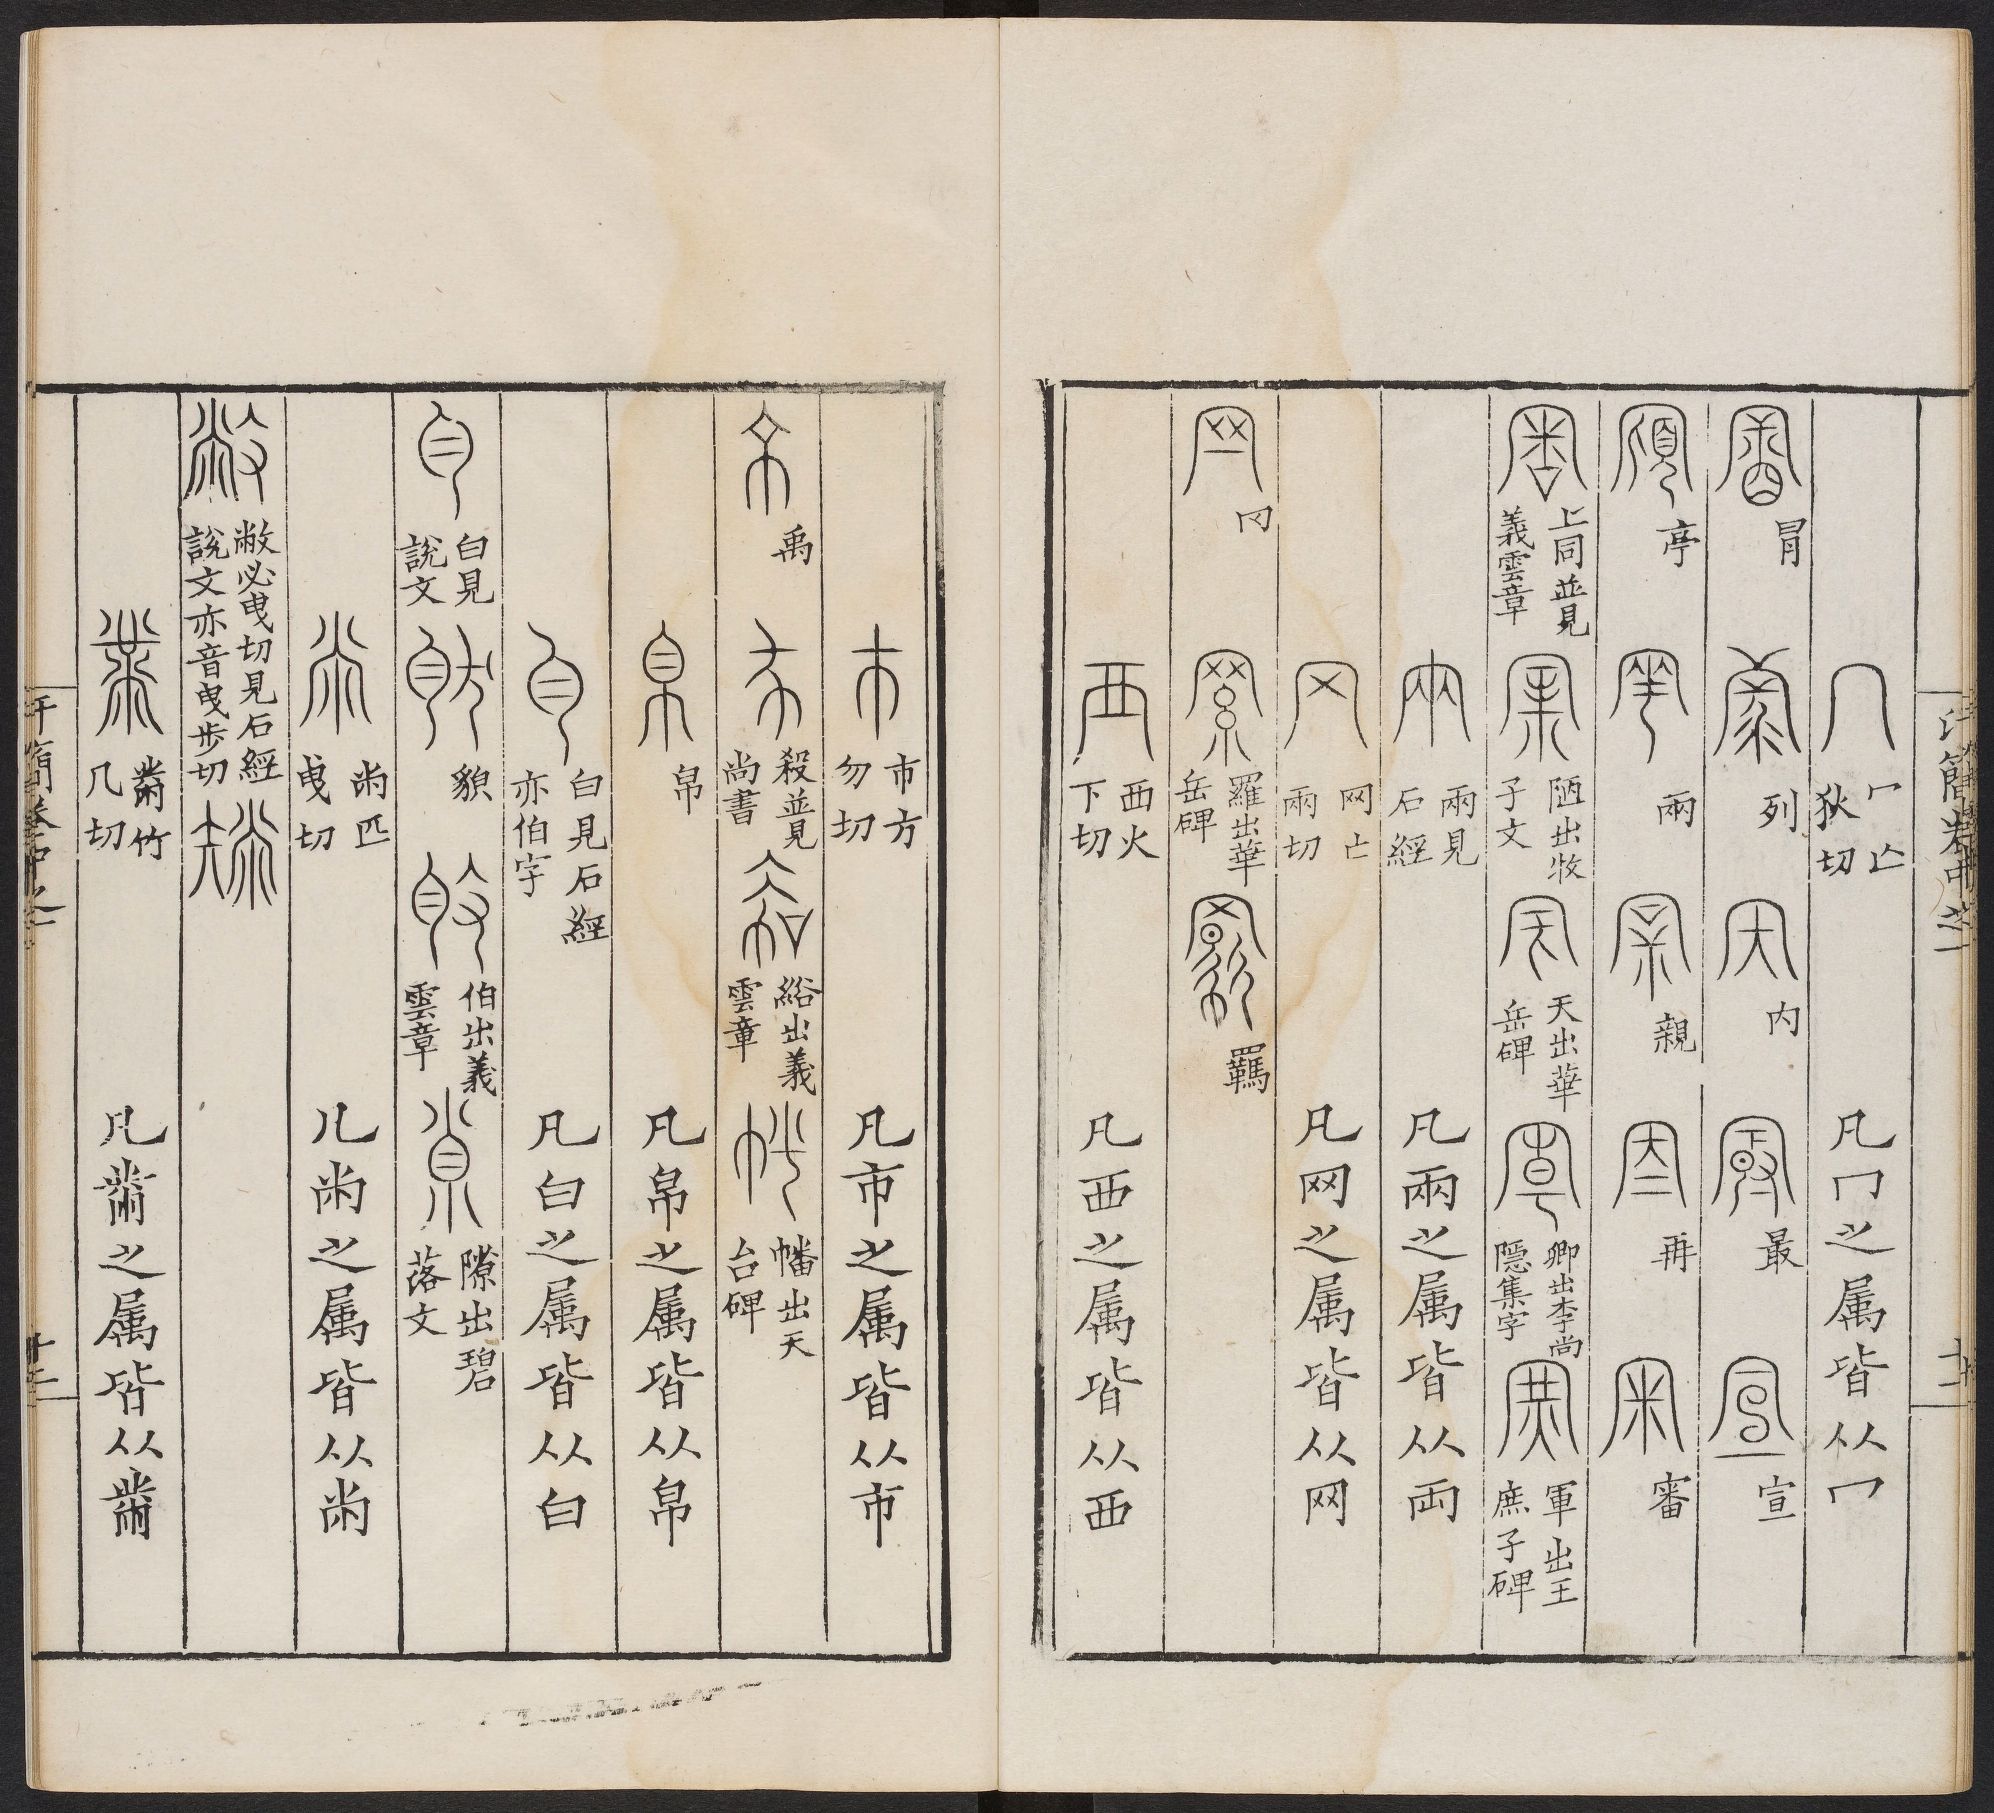 汗簡卷中之一
十一
冂 冂亡狄切 凡冂之属皆从冂
冑 列 内 最 宣
亭 兩 親 再 審
上同並見義雲章 陋出牧子文 天出華岳碑 卿出李尚隱集字 軍出王庶子碑
兩見石經 凡兩之属皆从兩
网亡兩切 凡网之属皆从网
罗出華岳碑 羈
襾 西火下切 凡西之属皆从西
市 市方勿切 凡市之属皆从市
禹 殺並見尚書 綌出義雲章 幡出天台碑
帛 凡帛之属皆从帛
白見石經亦伯字 凡白之属皆从白
白見說文 貌 伯出義雲章 隙出碧落文
㡀匹曳切 凡㡀之属皆从㡀
敝必曳切見石經說文亦音曳步切
黹竹几切 凡黹之属皆从黹
汗簡卷中之一
十二